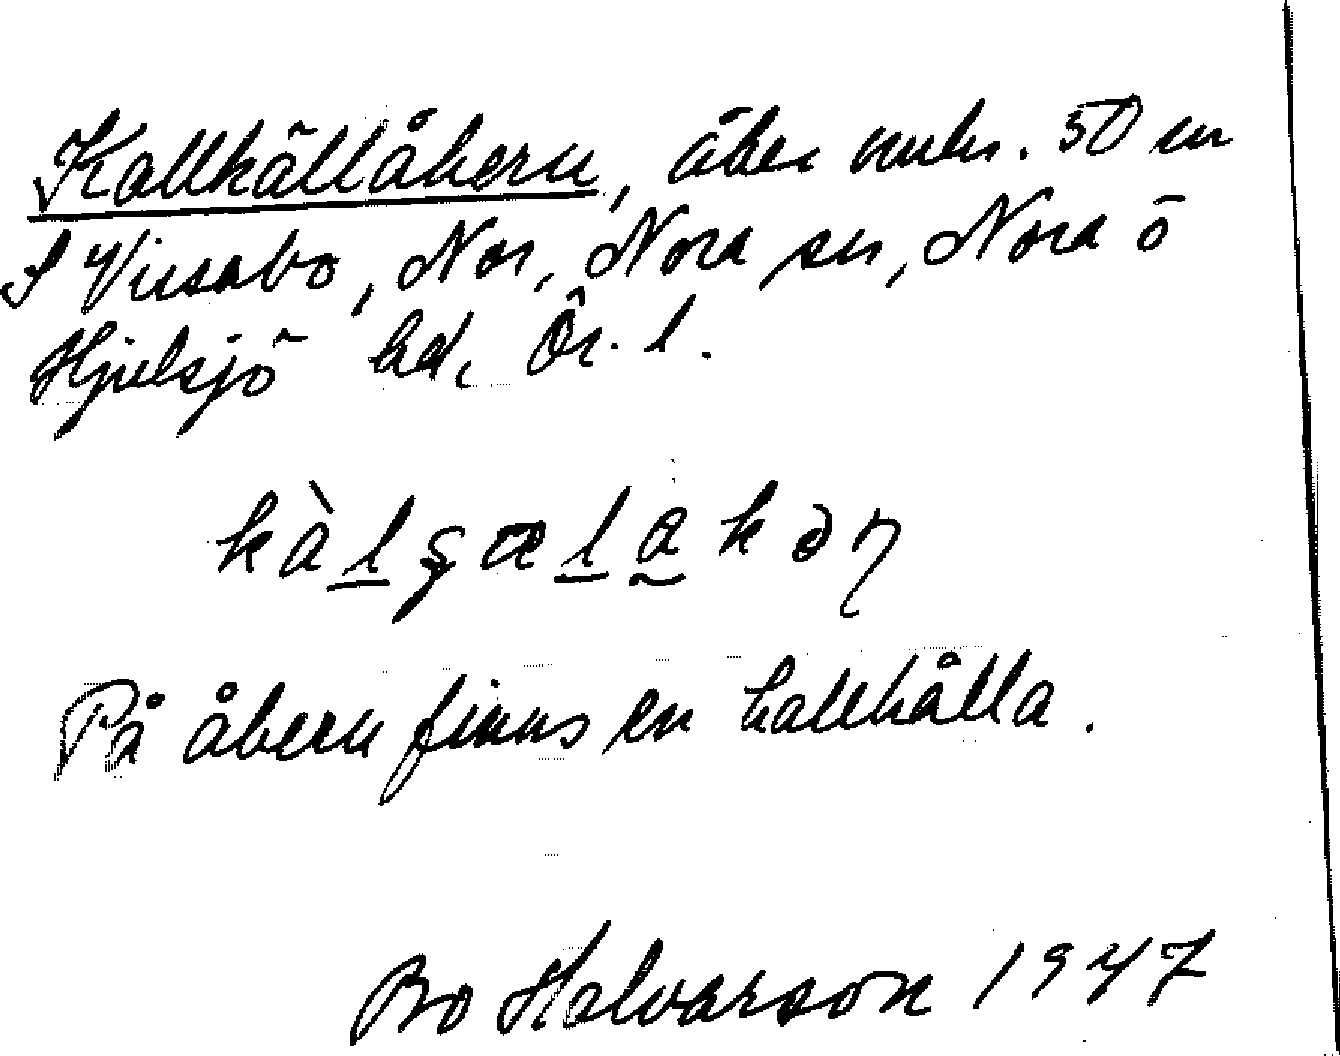 Kallkällåkern, åker omkr. 50 m
S Vissabo, Nor, Nora sn, Nora o
Hjulsjö hd, Ör. l.
kàlʂælakəɳ
På åkern finns en kallkälla.
Bo Halvarson 1947